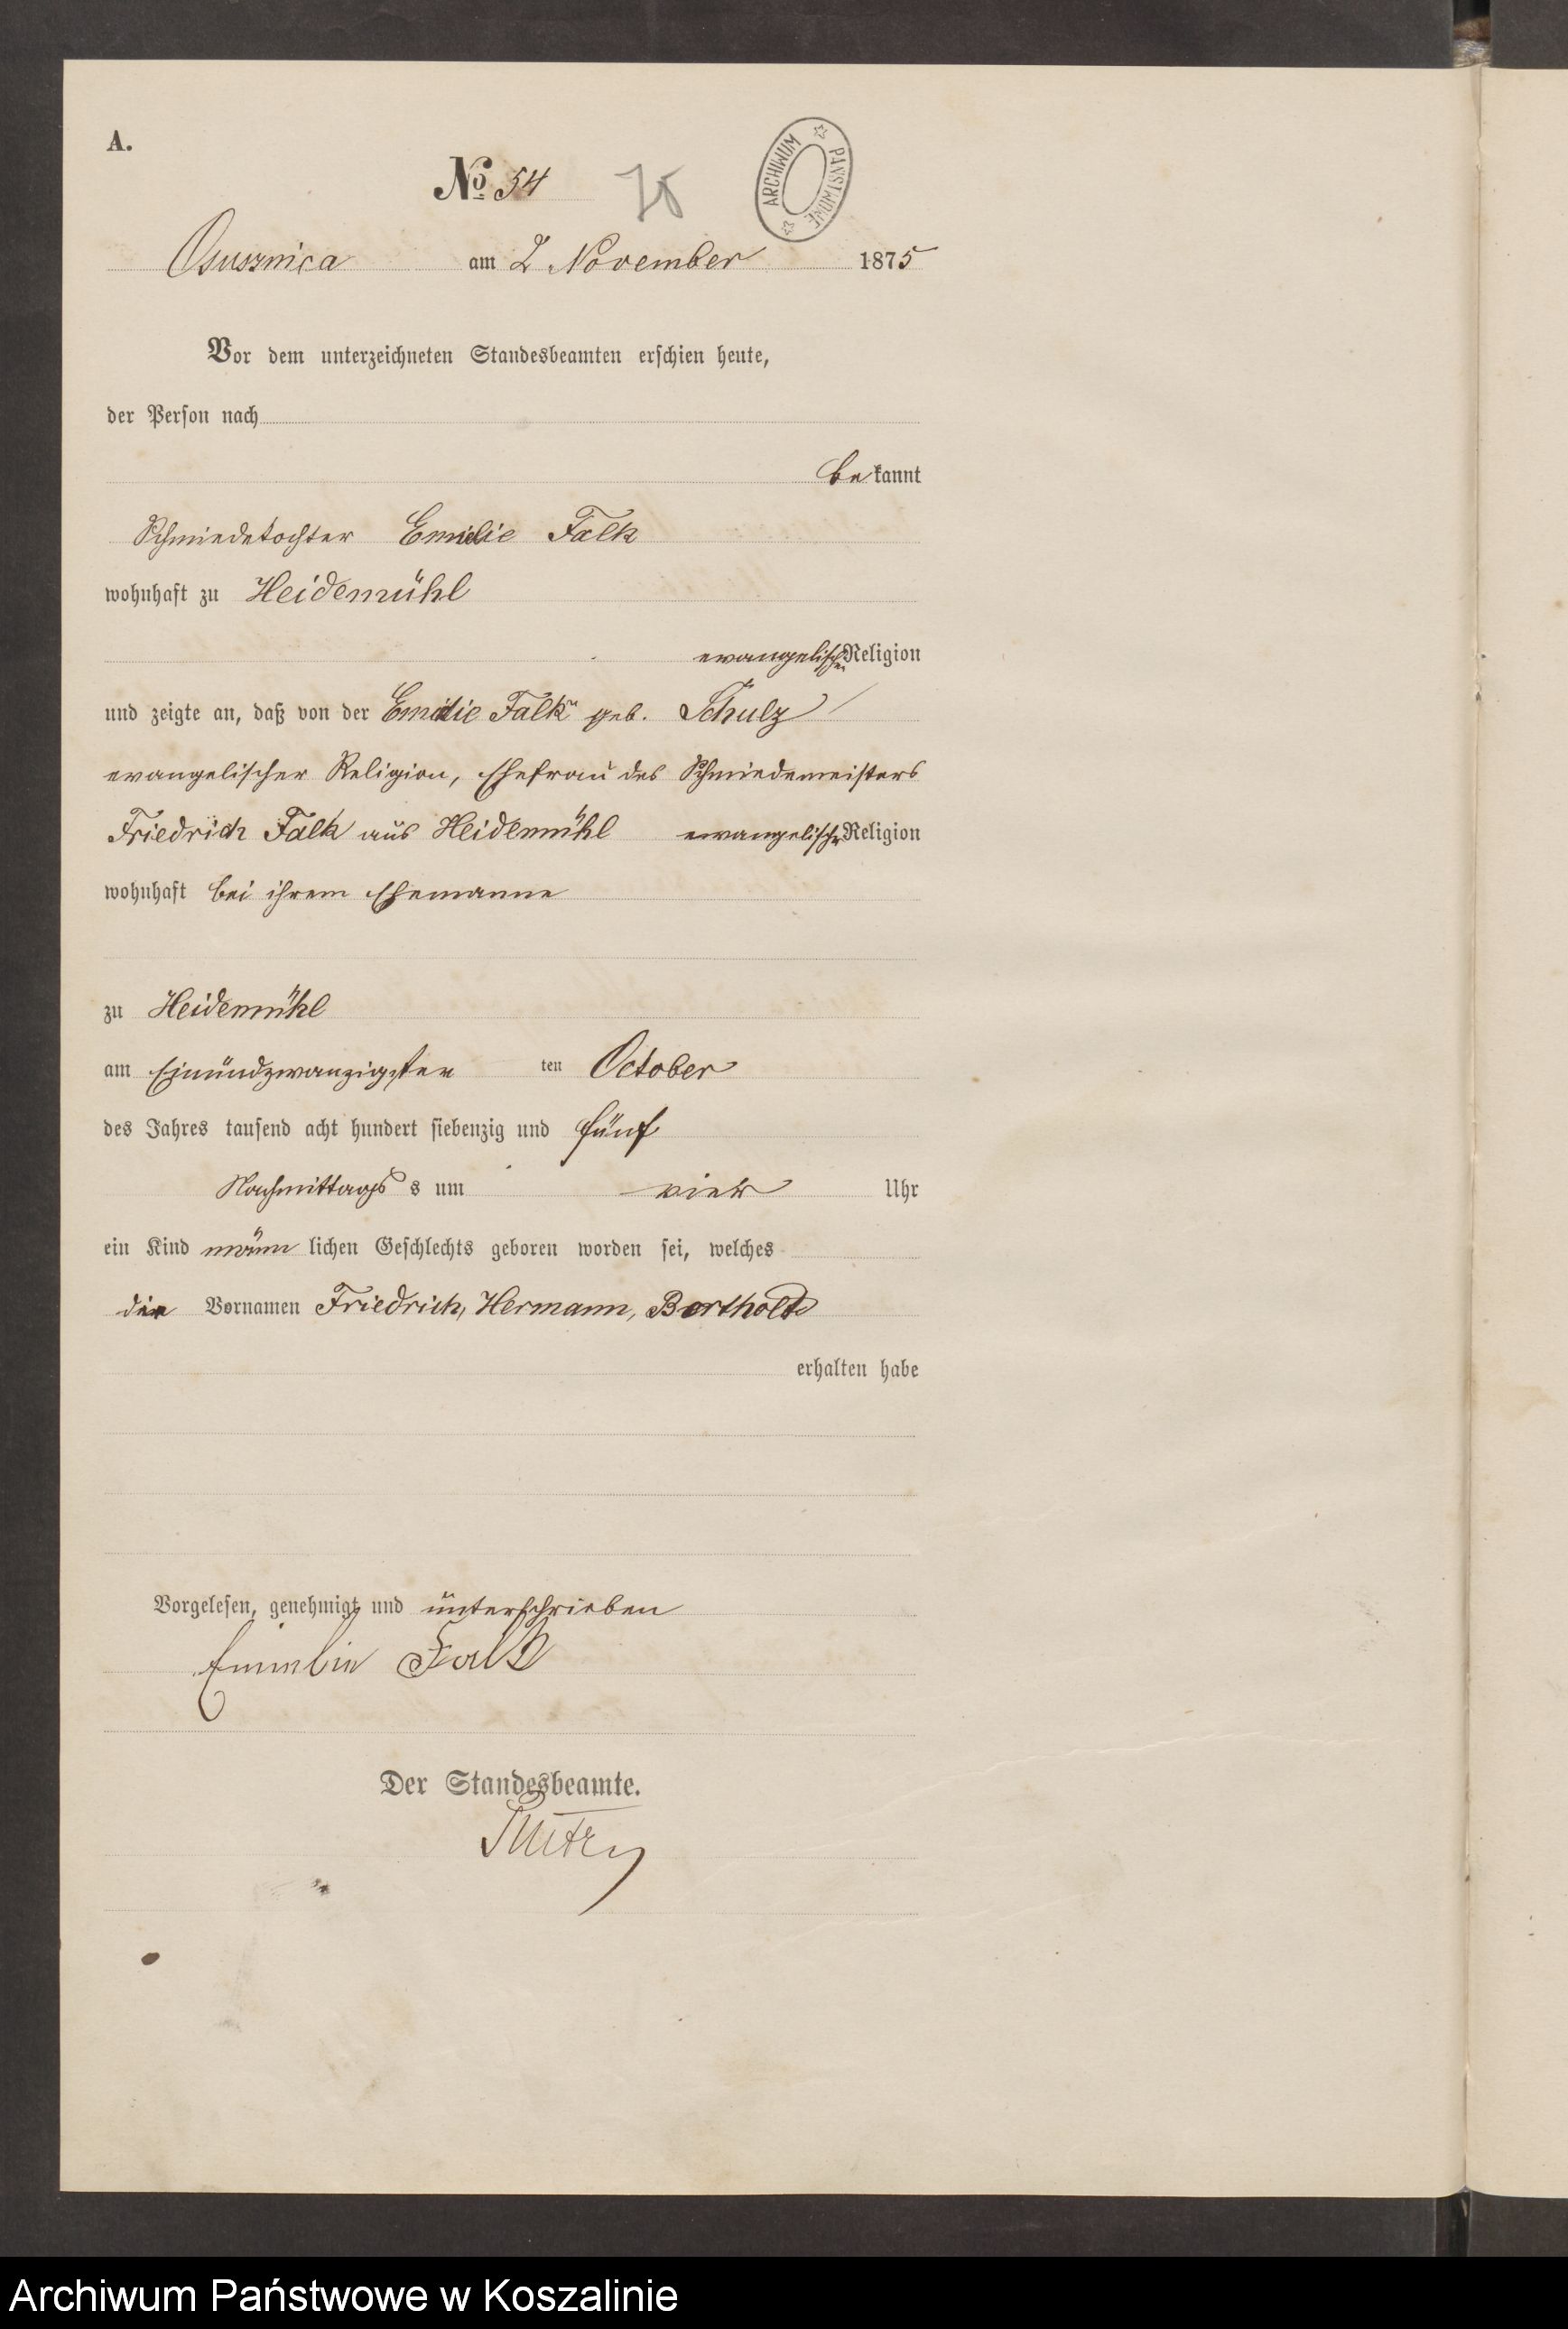 A.
№ 54
75
ARCHIWUM PAŃSTWOWE
Osusznica am 2 November 1875
Vor dem unterzeichneten Standesbeamten erschien heute,
der Person nach
bekannt
Schmiedetochter Emilie Falk
wohnhaft zu Heidemühl
evangelischer Religion
und zeigte an, daß von der Emilie Falk geb. Schulz
evangelischer Religion, Ehefrau des Schmiedemeisters
Friedrich Falk aus Heidemühl evangelischer Religion
wohnhaft bei ihrem Ehemanne
zu Heidemühl
am Einundzwanzigsten ten October
des Jahres tausend acht hundert siebenzig und fünf
Nachmittags s um vier Uhr
ein Kind männlichen Geschlechts geboren worden sei, welches
die Vornamen Friedrich, Hermann, Berthold
erhalten habe
Vorgelesen, genehmigt und unterschrieben
Emielie Falk
Der Standesbeamte.
Archiwum Państwowe w Koszalinie